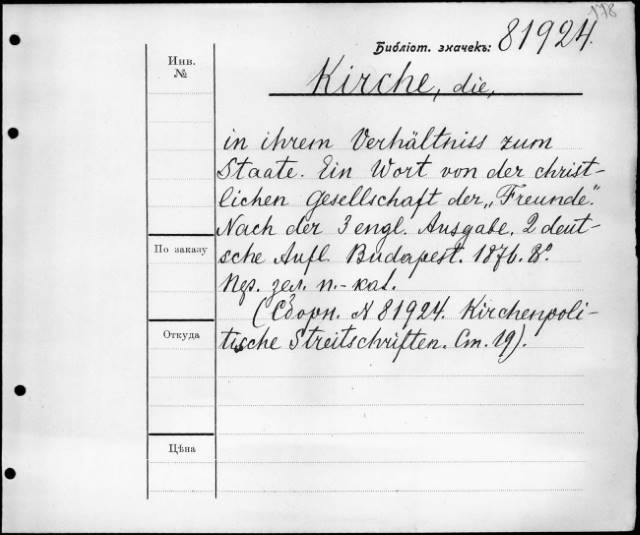 178
Библіот. значекъ: 81924.
Инв.
№
Kirche, die,
in ihrem Verhältniss zum
Staate. Ein Wort von der christ-
lichen Gesellschaft der „Freunde".
Nach der 3 engl. Ausgabe. 2 deut-
По заказу
sche Aufl. Budapest. 1876. 8°.
Пер. зел. п.-кал.
(Сборн. N 81924. Kirchenpoli-
Откуда
tische Streitschriften. Ст. 19).
Цѣна